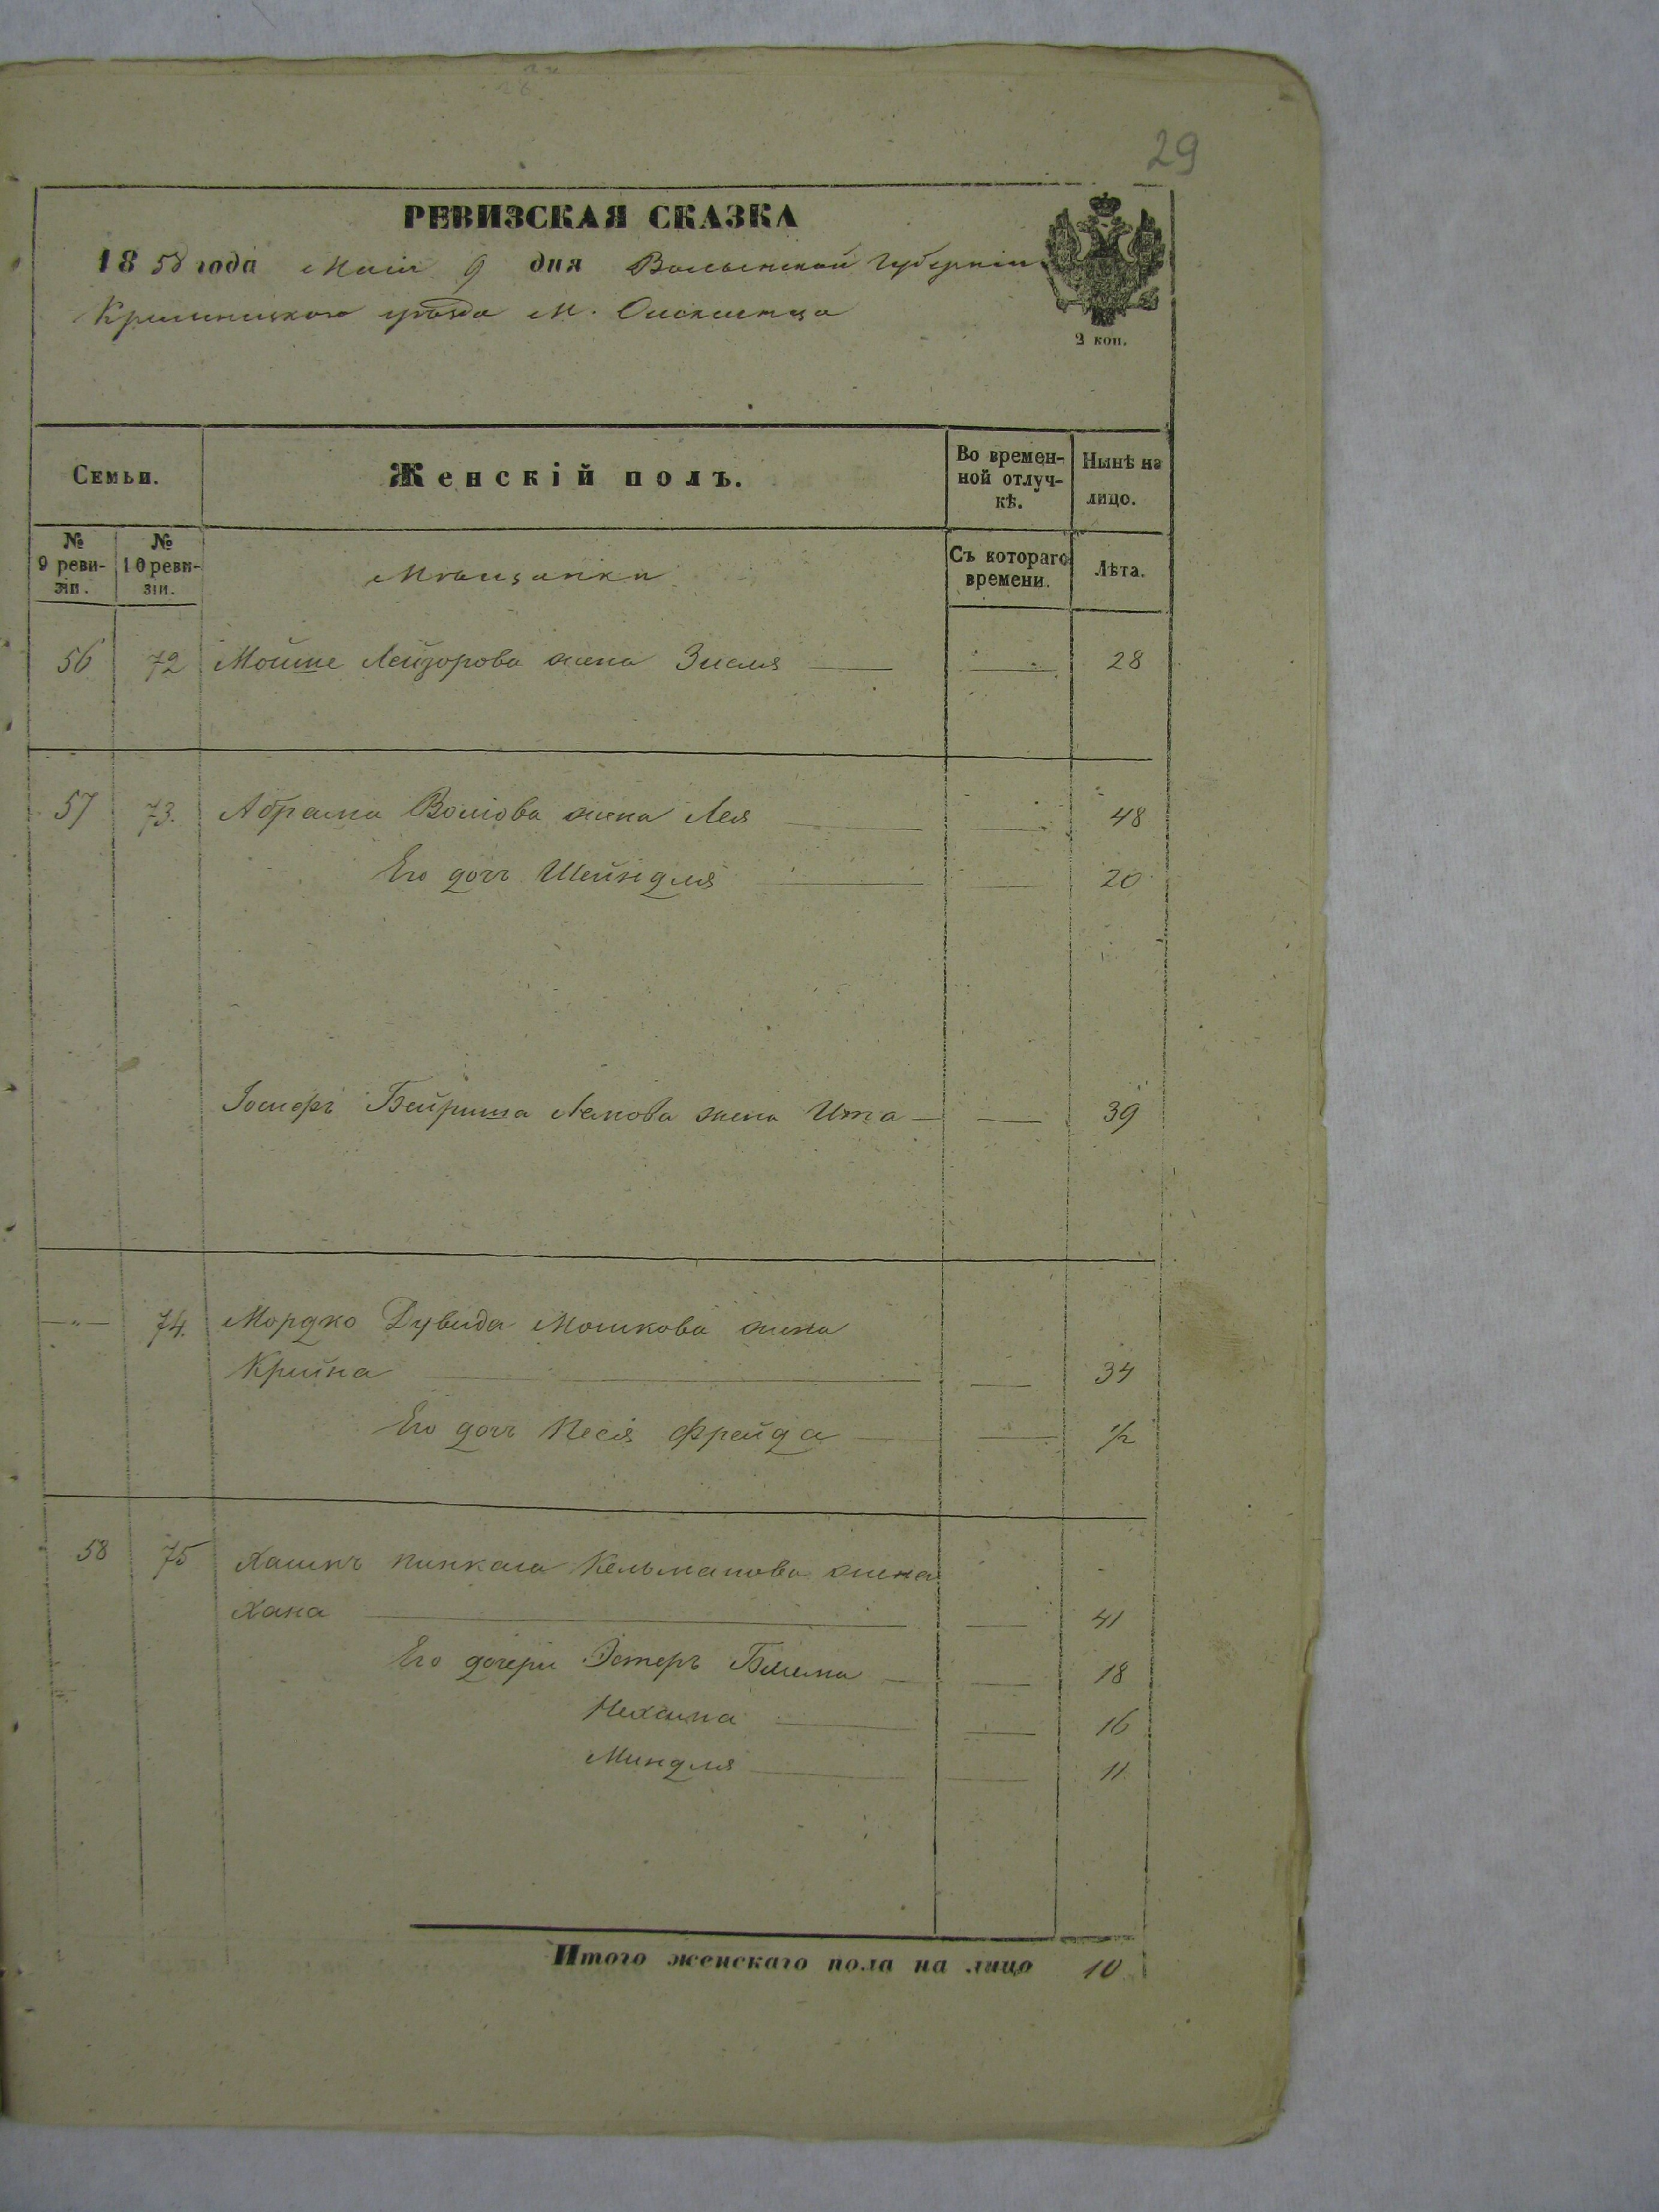 29
РЕВИЗСКАЯ СКАЗКА
1858 года Маія 9 дня Волынской Губерніи
Кременецкаго уѣзда М.
2 коп.
Семьи.
Женскій полъ.
Во времен-
ной отлуч-
кѣ.
Нынѣ на
лицо.
№
9 реви-
зіи.
№
10 реви-
зіи.
Мѣщанки
Съ котораго
времени.
Лѣта.
56 72 Мошке Лейзорова жена Зисля — — 28
57 73. Абрама Волкова жена Лея — — 48
Его дочь Шейндля — — 20
Іосифъ Бейриша жена Ита — — 39
—"— 74. Мордко Дувида Мошкова жена
Крейна — — 34
Его дочь Песя Фрейда — — 1/2
58 75 Пинкаса Кельманова жена
Хана — — 41
Его дочери Эстеръ Блима — — 18
Нехама — — 16
Миндля — — 11
Итого женскаго пола на лицо 10